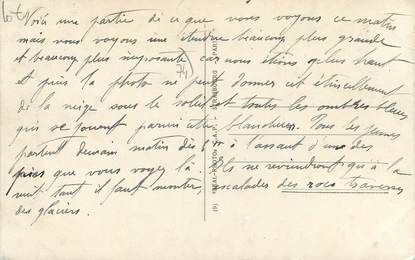 Voilà une partie de ce que nous voyons ce matin
mais nous voyons une étendue beaucoup plus grande
et beaucoup plus imposante car nous étions plus haut
et puis la photo ne peut donner cet étincellement
de la neige sous le soleil et toutes les ombres bleues
qui se jouent parmi cette blancheur. Tous les jeunes
partent demain matin dès à l'assaut d'un des
pics que vous voyez là. Ils ne reviendront qu'à la
nuit tant il faut monter, escalades des rocs traverser
des glaciers.
"REAL-PHOTO" C.A.P. PARIS